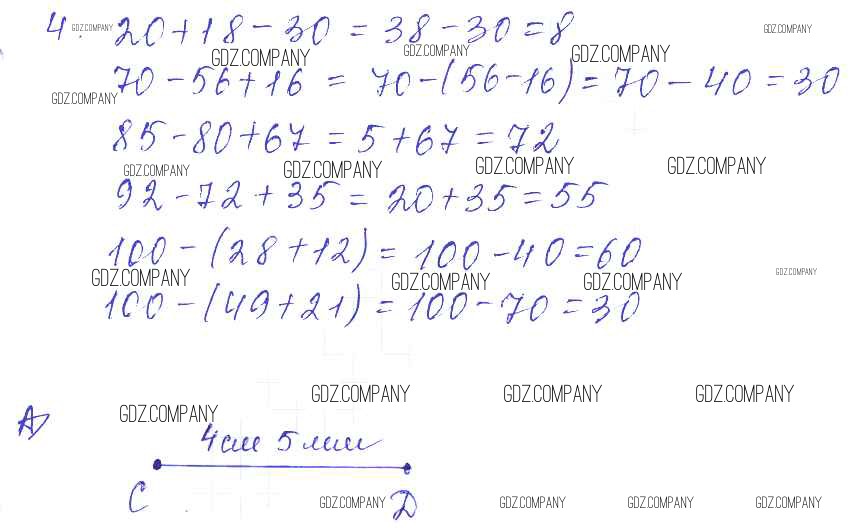 4. GDZ.COMPANY 20+18-30=38-30=8 GDZ.COMPANY
GDZ.COMPANY GDZ.COMPANY GDZ.COMPANY
70-56+16 = 70-(56-16)=70-40=30
GDZ.COMPANY
85-80+67=5+67=72
GDZ.COMPANY GDZ.COMPANY GDZ.COMPANY GDZ.COMPANY
92-72+35=20+35=55
100-(28+12)=100-40=60
GDZ.COMPANY GDZ.COMPANY GDZ.COMPANY GDZ.COMPANY
100-(49+21)=100-70=30
GDZ.COMPANY GDZ.COMPANY GDZ.COMPANY
А GDZ.COMPANY
4см 5мм
С Д
GDZ.COMPANY GDZ.COMPANY GDZ.COMPANY GDZ.COMPANY